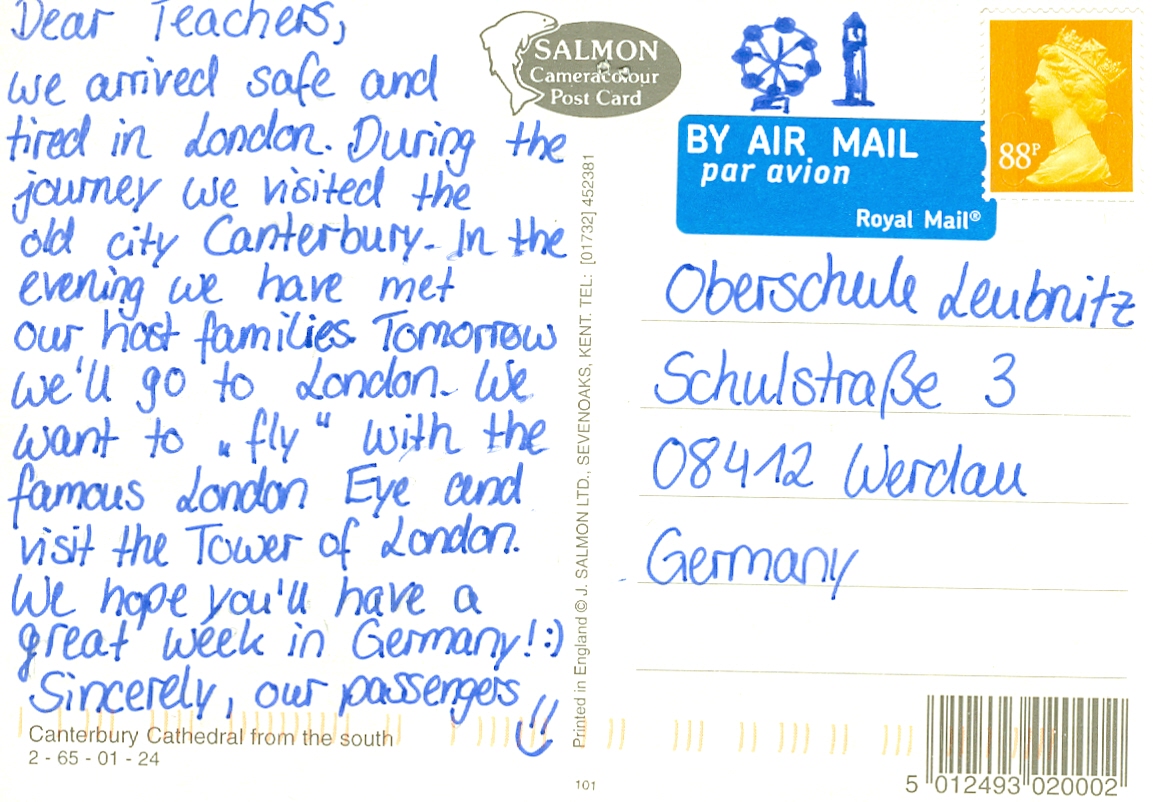 Dear Teachers,
we arrived safe and
tired in London. During the
journey we visited the
old city Canterbury. In the
evening we have met
our host families. Tomorrow
we'll go to London. We
want to „fly“ with the
famous London Eye and
visit the Tower of London.
We hope you'll have a
great week in Germany! :)
Sincerely, our passengers
Canterbury Cathedral from the south
2 - 65 - 01 - 24
SALMON
Cameracolour
Post Card
Printed in England © J. SALMON LTD., SEVENOAKS, KENT. TEL: [01732] 452381
101
BY AIR MAIL
par avion
Royal Mail®
88P
Oberschule Leubnitz
Schulstraße 3
08412 Werdau
Germany
5 012493 020002